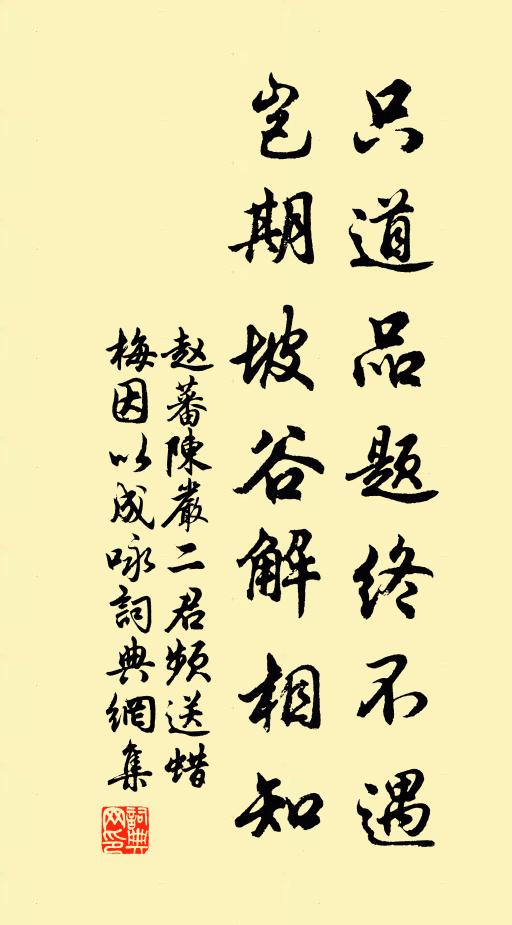 只道品题终不遇
岂期坡谷解相知
赵蕃陳嚴二君频送蜡
梅因以成咏詞典網集
詞典
网印